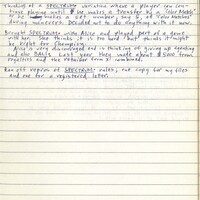 Thinking of a SPECTRUM variation where a player can con-
tinue playing until he makes a transfer by a "Color Match"
or he makes a set number, say 5, of "Color Matches"
during maneuvers. Decided not to do anything with it now.
Brought SPECTRUM to Alice and played part of a game
with her. She thinks it is too hard but thinks it might
be right for Champion.
Alice is very discouraged and is thinking of giving up spending
and also Last year they made about $5000 from
royalties and the retailer term combined.
Ran off reprov of SPECTRUM rules, not copy for my files
and one for a registered letter.